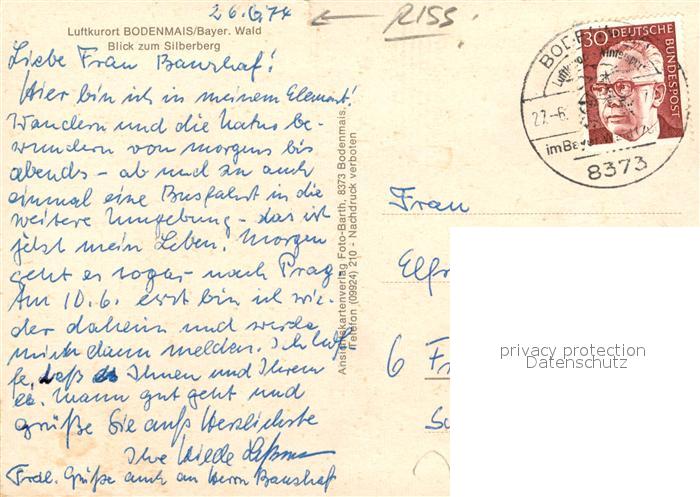 26.6.74
RISS
Luftkurort BODENMAIS/Bayer. Wald
Blick zum Silberberg
Liebe Frau Banzhaf!
Hier bin ich in meinem Element!
Wandern und die Natur be-
wundern von morgens bis
abends - ab und zu auch
einmal eine Busfahrt in die
weitere Umgebung - das ist
jetzt mein Leben. Morgen
geht es sogar nach Prag.
Am 10.6. erst bin ich wie-
der daheim und werde
mich dann melden. Ich hof-
fe, daß es Ihnen und Ihrem
Mann gut geht und
grüße Sie aufs Herzlichste
Ihre
Frdl. Grüße auch an Herrn Banzhaf
Ansichtskartenverlag Foto-Barth, 8373 Bodenmais,
Telefon (09924) 210 - Nachdruck verboten
30 DEUTSCHE
BUNDESPOST
BODE
27.-6
im Baye
8373
Frau
Elfr
6 Fr
privacy protection
Datenschutz